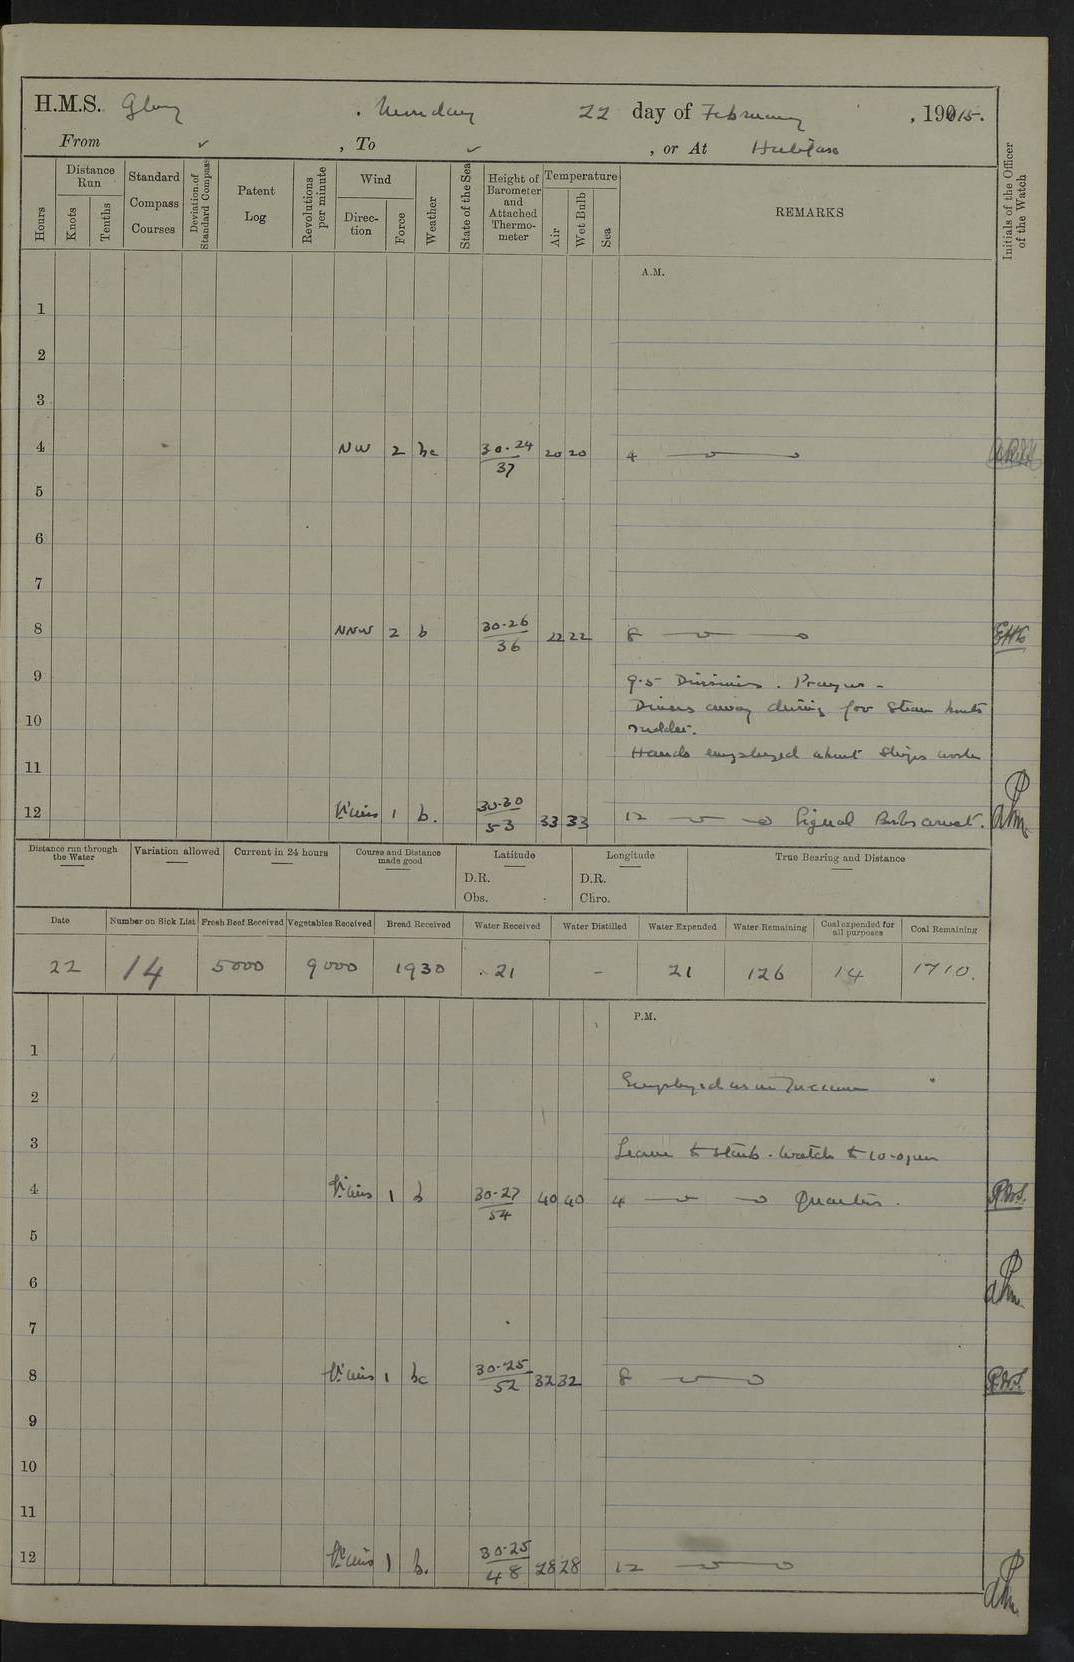 H.M.S. Glory , Monday 22 day of February , 1915.
From ✓ , To ✓ , or At Halifax
Hours
Distance Run
Knots
Tenths
Standard Compass Courses
Deviation of Standard Compass
Patent Log
Revolutions per minute
Wind
Direction
Force
Weather
State of the Sea
Height of Barometer and Attached Thermometer
Temperature
Air
Wet Bulb
Sea
REMARKS
Initials of the Officer of the Watch
A.M.
1
2
3
4 NW 2 bc 30.24/37 20 20 4
5
6
7
8 NNW 2 b 30.26/36 22 22 8 EHE
9 9.5 Divisions. Prayers -
Divers away diving for Steam boats
10 rudder.
Hands employed about Ships work
11
12 Vrious 1 b. 30.30/53 33 33 12 Signal Boys
Distance run through the Water
Variation allowed
Current in 24 hours
Course and Distance made good
Latitude
D.R.
Obs.
Longitude
D.R.
Chro.
True Bearing and Distance
Date Number on Sick List Fresh Beef Received Vegetables Received Bread Received Water Received Water Distilled Water Expended Water Remaining Coal expended for all purposes Coal Remaining
22 14 5000 9000 1930 21 - 21 126 14 1710.
P.M.
1
Employed as in Forenoon
2
3 Leave to Starb. Watch to 10.0 pm
4 Vrious 1 b 30.27/54 40 40 4 Quarters.
5
6
7
8 Vrious 1 bc 30.25/52 32 32 8
9
10
11
12 Vrious 1 b. 30.25/48 28 28 12